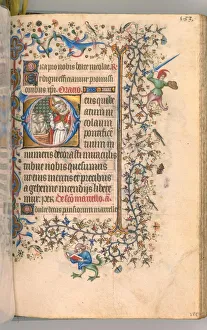 Ora pro nobis beate nicolae.
digni efficiamur promissi
onibus xpi. Oratio
Deus qui be
atum ni
colaum
pontifice
tuum in
numeris decorasti miraculis
tribue nobis quesumus
ut eius meritis et precibus
a gehenne incendiis libere
mur. per. De sco marcello. a.
O dulce decus parisiorum marcelle